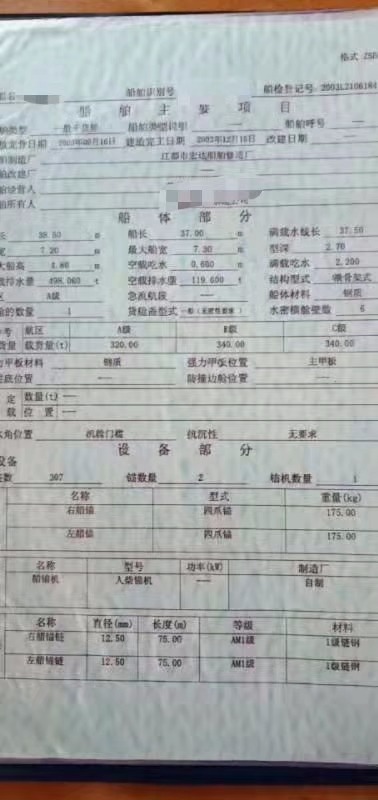 格式 ZSB
船名 船舶识别号 船检登记号 2003L2106184
船舶主要项目
船舶类型 一般干货船 船舶类型说明 —— 船舶呼号 ——
安放龙骨日期 2003年08月16日 建造完工日期 2003年12月15日 改建日期 ——
船舶制造厂 江都市宏达船舶修造厂
船舶改建厂 ——
船舶经营人
船舶所有人
船体部分
长 38.50 m 船长 37.00 m 满载水线长 37.50
宽 7.20 m 最大船宽 7.30 m 型深 2.70
大船高 4.80 m 空载吃水 0.600 m 满载吃水 2.200
载排水量 498.060 t 空载排水量 119.600 t 结构型式 横骨架式
区 A级 急流航段 —— 船体材料 钢质
舱的数量 1 货舱盖型式 水密横舱壁数 6
号 航区 A级 B级 C级
货量 载货量(t) 320.00 340.00 340.00
力甲板材料 钢质 强力甲板位置 主甲板
层底位置 —— 防撞边舱位置 ——
定 数量(t) ——
载 位置 ——
水角位置 机舱门槛 抗沉性 无要求
设备部分
设备
数 307 锚数量 2 锚机数量 1
名称 型式 重量(kg)
右艏锚 四爪锚 175.00
左艏锚 四爪锚 175.00
名称 型号 功率(kW) 制造厂
艏锚机 人柴锚机 —— 自制
名称 直径(mm) 长度(m) 等级 材料
右艏锚链 12.50 75.00 AM1级 1级链钢
左艏锚链 12.50 75.00 AM1级 1级链钢